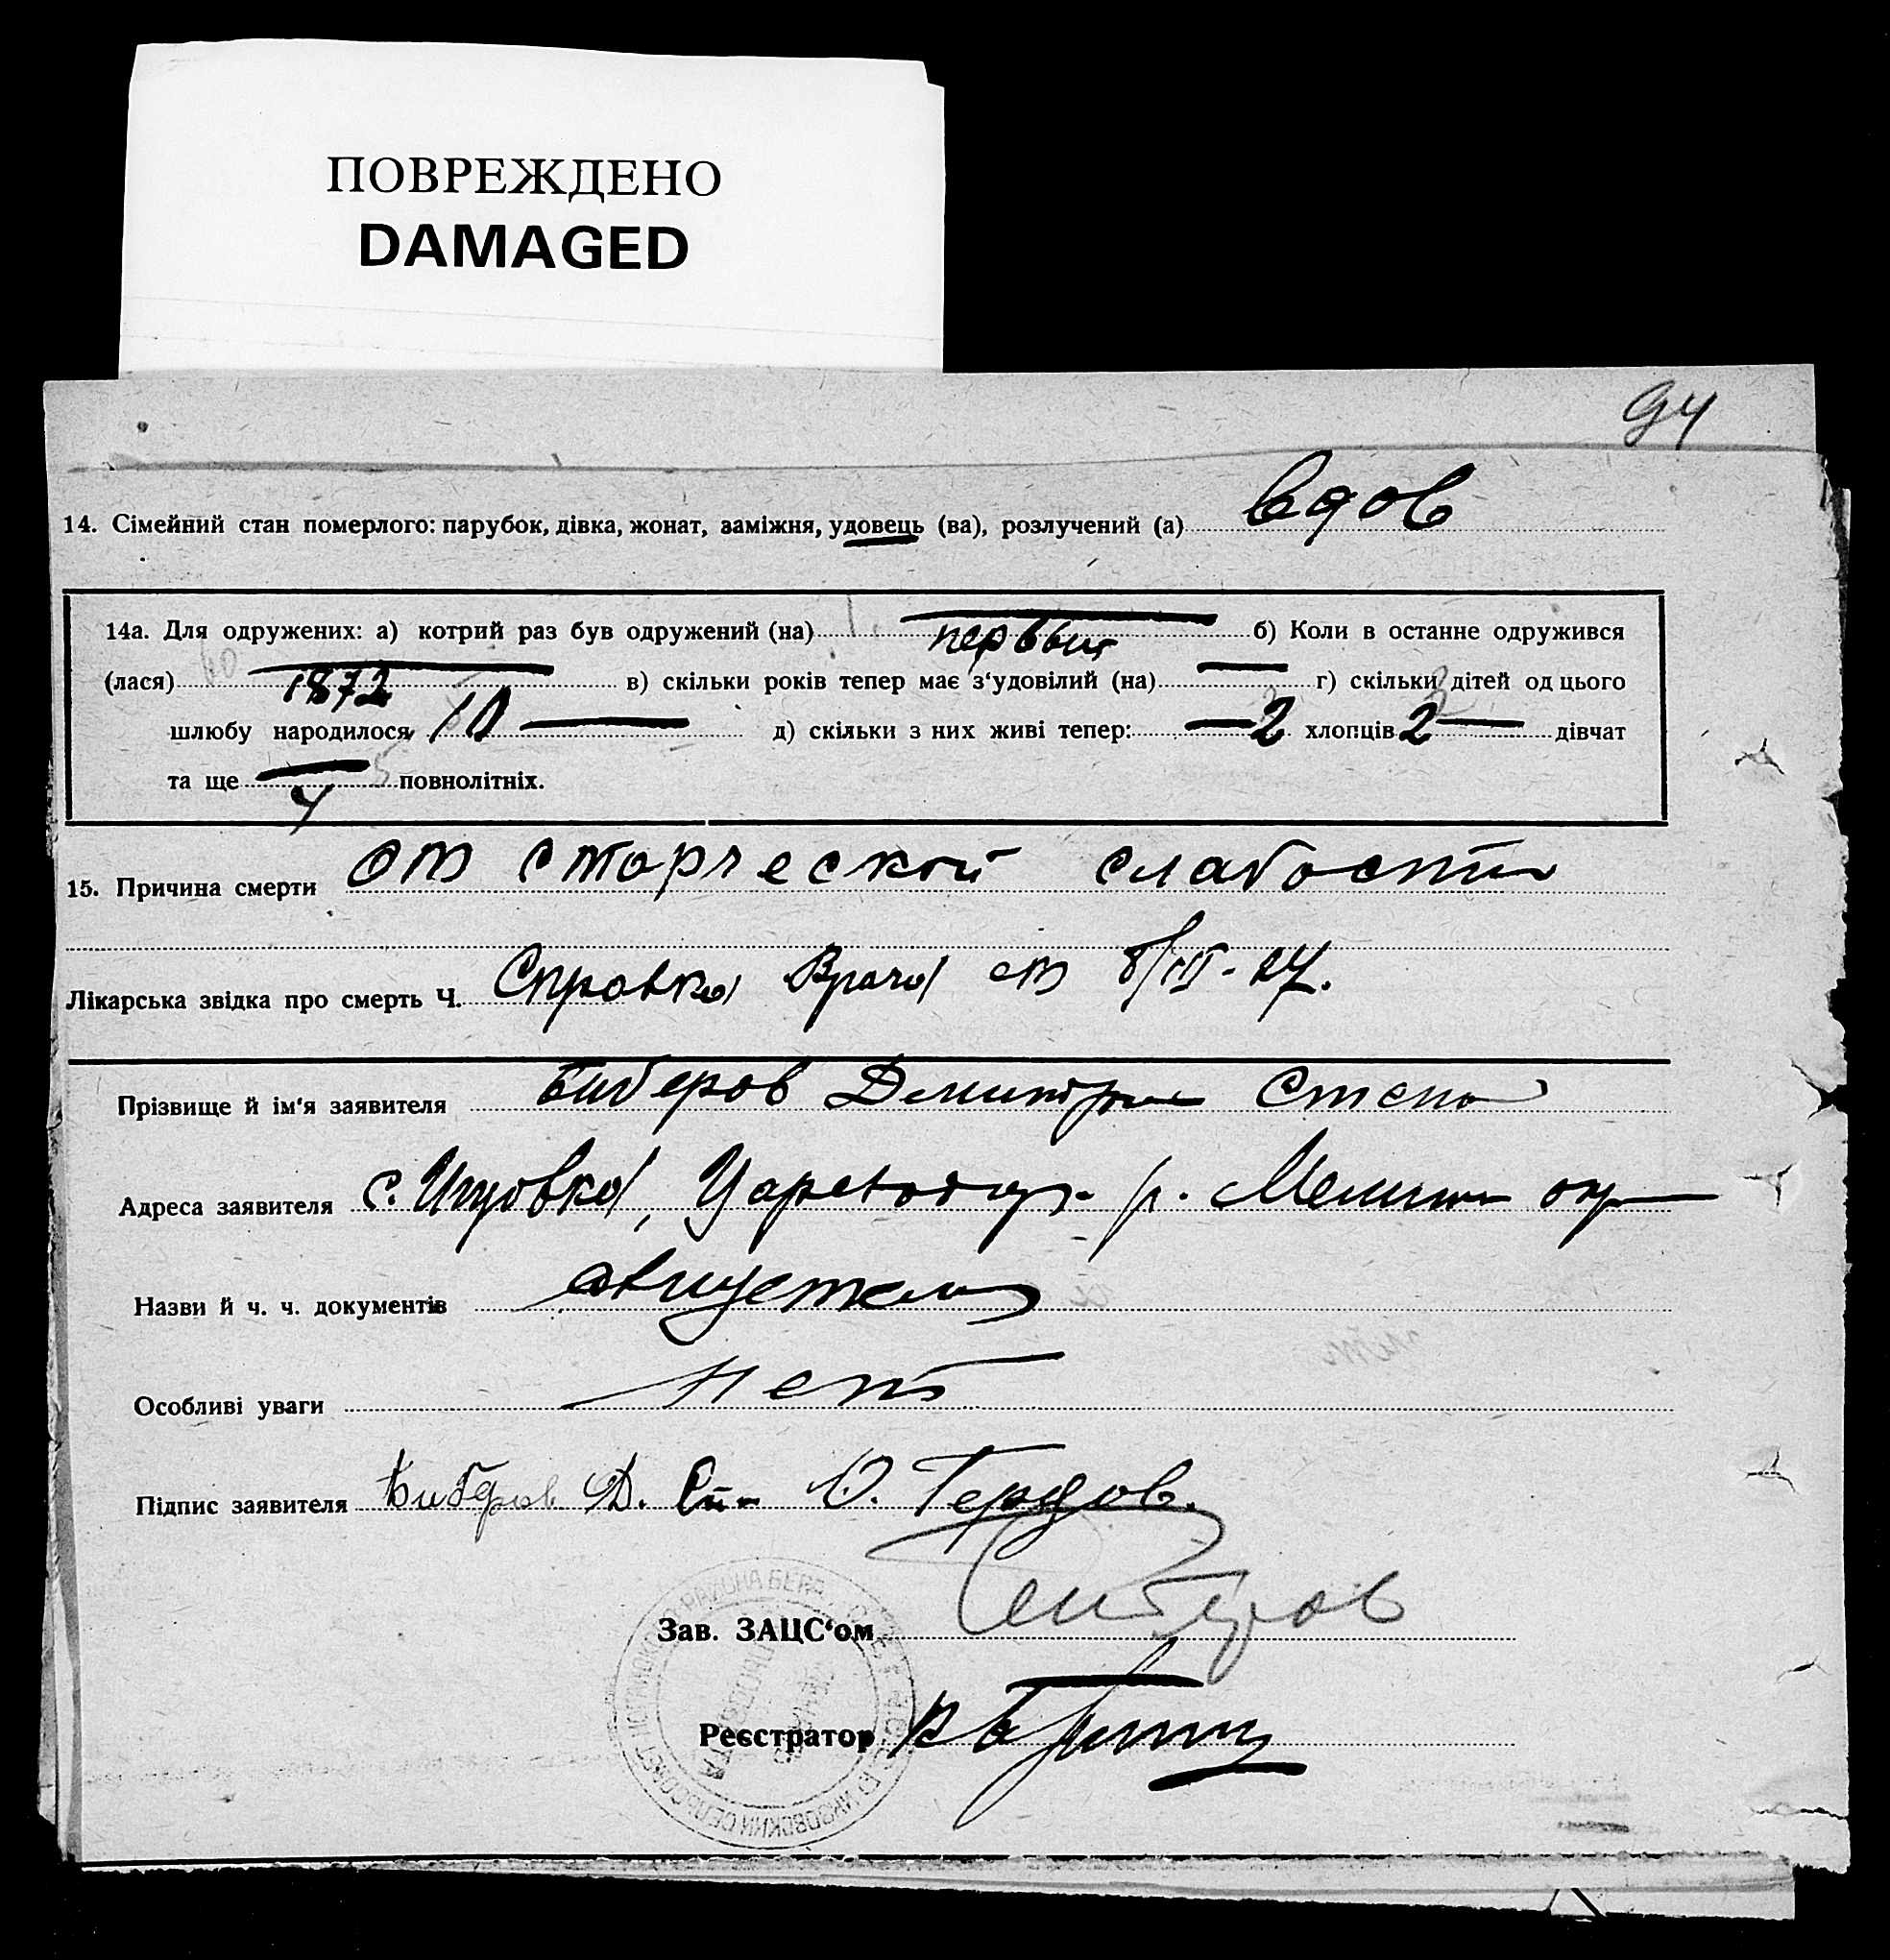 ПОВРЕЖДЕНО
DAMAGED
94
14. Сімейний стан померлого: парубок, дівка, жонат, заміжня, удовець (ва), розлучений (а) вдов
14а. Для одружених: а) котрий раз був одружений (на) первый б) Коли в останне одружився
(лася) 1872 в) скільки років тепер має з‘удовілий (на) г) скільки дітей од цього
шлюбу народилося 10 д) скільки з них живі тепер: 2 хлопців 2 дівчат
та ще 4 повнолітніх.
15. Причина смерти от старческой слабости
Лікарська звідка про смерть Ч. Справка Врача от 8/III-27.
Прізвище й ім‘я заявителя Биберов Дмитрий Степа
Адреса заявителя с. Инзовка, р.
Назви й ч. ч. документів
Особливі уваги нет
Підпис заявителя Д.
Зав. ЗАЦС‘ом
Реєстратор